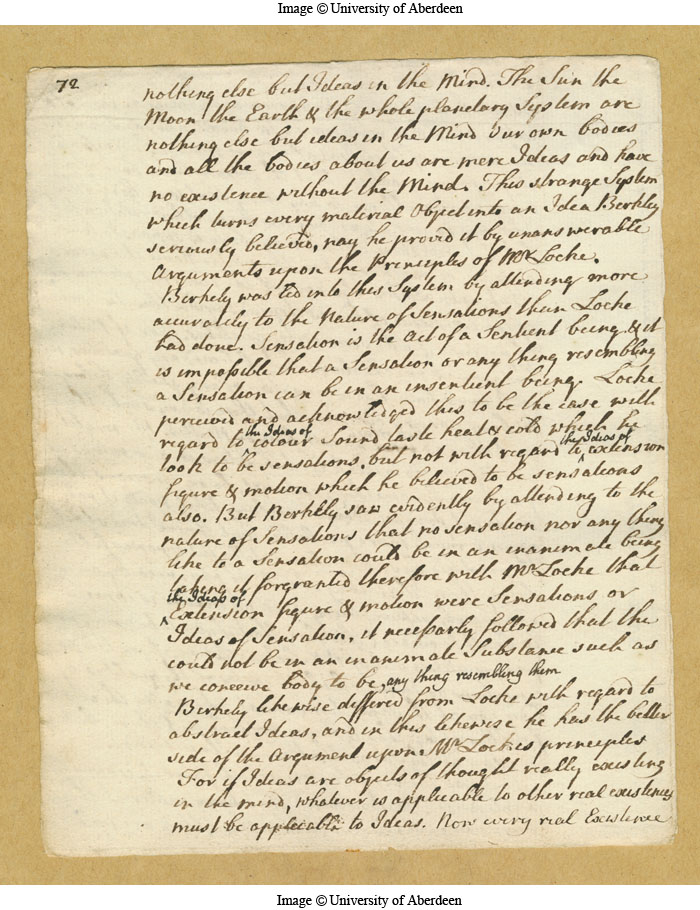 Image © University of Aberdeen
72
nothing else but Ideas in the Mind. The Sun the
Moon the Earth & the whole planetary System are
nothing else but ideas in the Mind Our own bodies
and all the bodies about us are mere Ideas and have
no existence without the Mind. This strange System
which turns every material Object into an Idea Berkely
seriously believed, nay he proved it by unanswerable
Arguments upon the Principles of Mr Locke.
Berkely was led into this System by attending more
accurately to the Nature of Sensations than Locke
had done. Sensation is the Act of a Sentient being & it
is impossible that a Sensation or any thing resembling
a Sensation can be in an insentient being. Locke
perceived and acknowledged this to be the case with
the Ideas of
regard to colour Sound taste heat & cold which he
the Ideas of
took to be sensations, but not with regard to extension
figure & motion which he believed to be sensations
also. But Berkely saw evidently by attending to the
nature of Sensations that no sensation nor any thing
like to a Sensation could be in an inanimate being
taking it forgranted therefore with Mr Locke that
the Ideas of
Extension figure & motion were Sensations or
Ideas of Sensation, it necessarly followed that the
could not be in an inanimate Substance such as
we conceive body to be, any thing resembling them
Berkely likewise differed from Locke with regard to
abstract Ideas, and in this likewise he has the better
side of the Argument upon Mr Lockes principles
For if Ideas are objects of thought really existing
in the mind, whatever is applicable to other real existences
must be applicable to Ideas. Now every real Existence
Image © University of Aberdeen